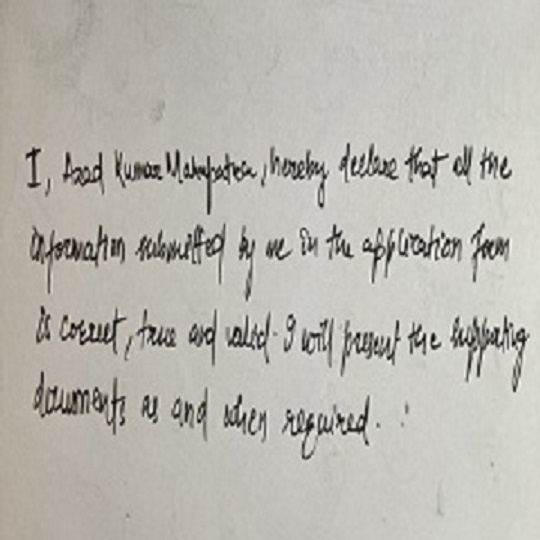 I, Azad Kumar Mahapatra, hereby declare that all the
information submitted by me in the application form
is correct, true and valid. I will present the supporting
documents as and when required.